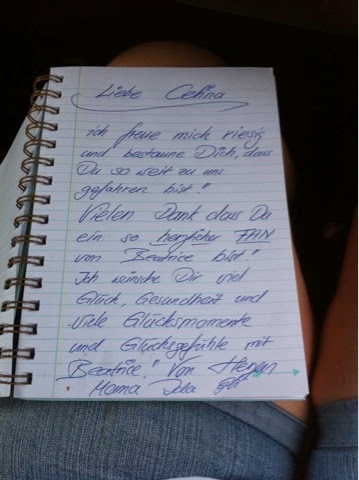 Liebe Celina
ich freue mich riesig
und bestaune Dich, dass
Du so weit zu uns
gefahren bist"
Vielen Dank dass Du
ein so herzlicher FAN
von Beatrice bist"
Ich wünsche Dir viel
Glück, Gesundheit und
viele Glücksmomente
und Glücksgefühle mit
Beatrice" Von Herzen
Mama Ida